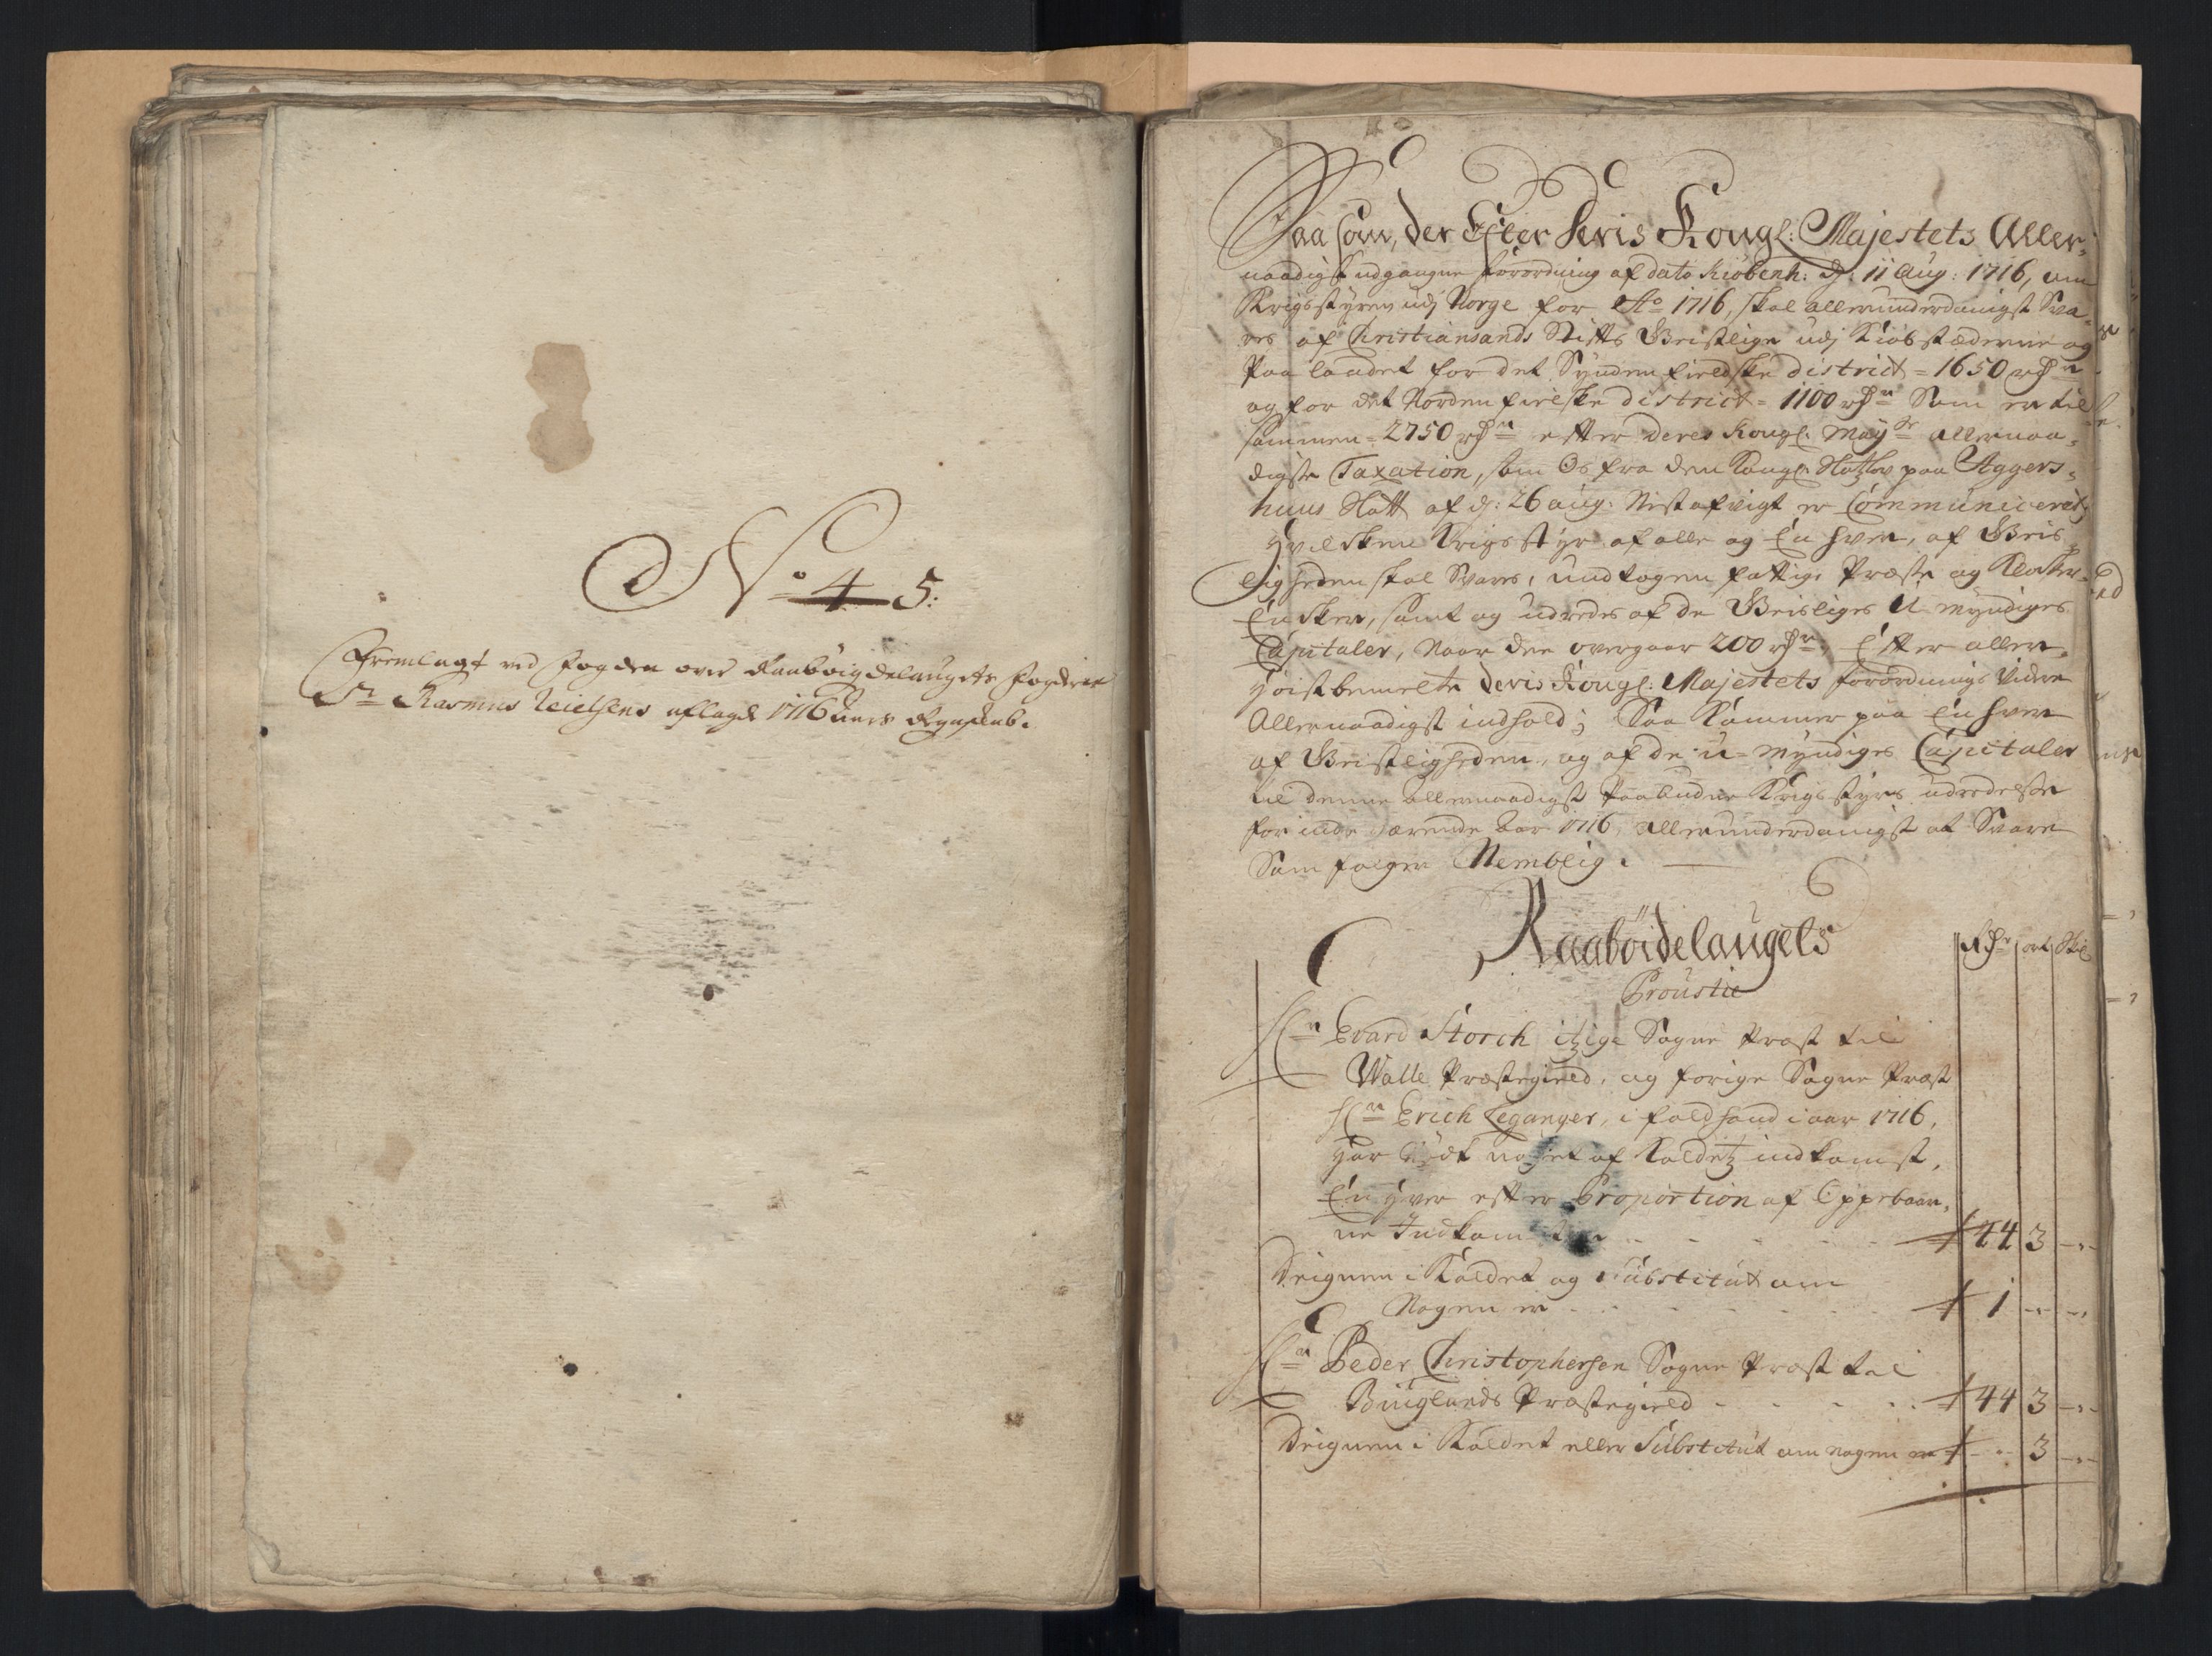 No 4 5:
Fremlagt ved Fogden over Raabøigdelaugets Fogderie
Sr Rasmus Nielsens aflagde 1716 Aars Regenskab.
Saasom, der Efter Deris Kongl: Majestets Aller-
naadigst udgangne forordning af dato Kiøbenh: d: 11 Aug: 1716, om
Krigsstyren udj Norge for Ao 1716, skal allerunderdanigst Sva-
res af Christiansands Stifts Geistlige udj Kiøbstæderne og
Paa landet for det Synden fieldske district = 1650 rdr
og for det Norden fielske district = 1100 rdr Som er til
sammen = 2750 rdr efter deres Kongl: Mayts allernaa-
digste Taxation, som Os fra den Kongl: Slotzlov paa Aggers-
huus Slott af d: 26 aug: Nest afvigt er Communicerit,
hvilken Krigsstyr af alle og En hver, af Geist-
ligheden skal Svares, undtagen fattige Præste og Klocker-
Encker, samt og udredes af de Geistliges U-myndiges
Capitaler, Naar den overgaar 200 rdr, Efter aller-
høistbemelte Deris Kongl: Majestets forordnings Videre
Allernaadigst indhold; Saa Kommer paa En hver
af Geistligheden, og af de u-myndiges Capitaler
til denne allernaadigst Paabudne Krigsstyrs udredelse
for inde værende Aar 1716, allerunderdanigst at Svare
Som følger Nemblig.
Raabøidelaugets
Proustie
Rdr ort Skil
Hr Evard Storch itzige Sogne Præst til
Walle Præstegield, og forige Sogne Præst
Hr Erich Leganger, i fald hand i aar 1716,
har nødt noget af Kaldetz indkomst,
En hver efter Proportion af Oppebaar-
ne Indkomster 44 3 -
Deignen i Kaldet og Substitut om
Nogen er 1 - -
Hr Peder Christophersen Sogne Præst til
Buiglands Præstegield 44 3 -
Deignen i Kaldet eller Substitut om nogen er - 3 -